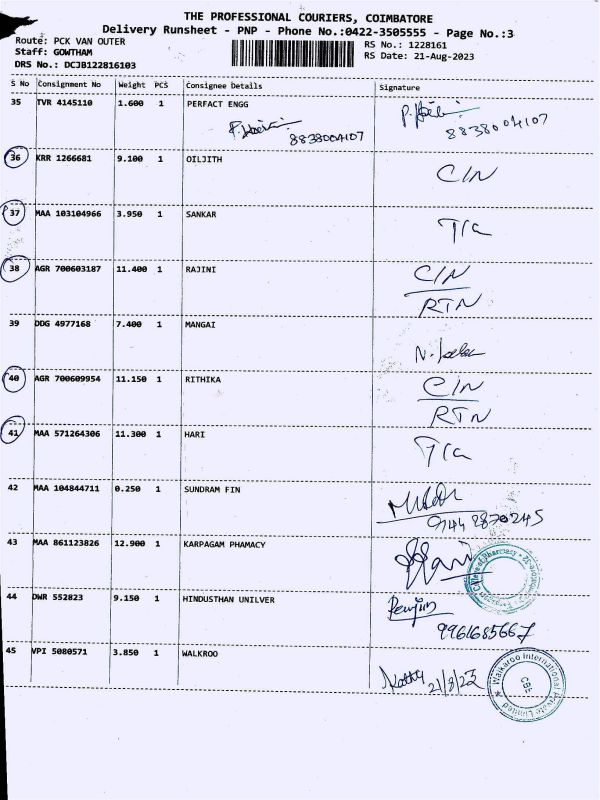 THE PROFESSIONAL COURIERS, COIMBATORE
Delivery Runsheet - PNP - Phone No.:0422-3505555 - Page No.:3
Route: PCK VAN OUTER
RS No.: 1228161
Staff: GOWTHAM
RS Date: 21-Aug-2023
DRS No.: DCJB122816103
S No Consignment No Weight PCS Consignee Details Signature
35 TVR 4145110 1.600 1 PERFACT ENGG
8838004107 8838004107
36 KRR 1266681 9.100 1 OILJITH
C/N
37 MAA 103104966 3.950 1 SANKAR
T/a
38 AGR 700603187 11.400 1 RAJINI
C/N
RTN
39 DDG 4977168 7.400 1 MANGAI
40 AGR 700609954 11.150 1 RITHIKA
C/N
RTN
41 MAA 571264306 11.300 1 HARI
T/a
42 MAA 104844711 0.250 1 SUNDRAM FIN
43 MAA 861123826 12.900 1 KARPAGAM PHAMACY
44 DWR 552823 9.150 1 HINDUSTHAN UNILVER
9961685667
45 VPI 5080571 3.850 1 WALKROO
21/8/23
Walkaroo International Private Limited
CBE